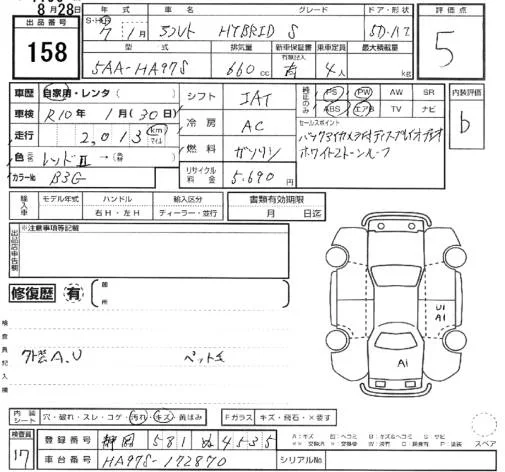 8月28日
出品番号
158
年式 車名 グレード ドア・形状
S・H・R 7年1月 アルト HYBRID S 5D・ハB
型式 排気量 新車保証書 乗車定員 最大積載量
有無記入
5AA-HA97S 660cc 有 4人 kg
評価点
5
車歴 自家用・レンタ( )
車検 R10年1月(30日)
走行 2,013 km マイル
色 元色 レッドⅡ →(替 )
カラーNo B3G
シフト IAT
冷房 AC
燃料 ガソリン
リサイクル料金 5,690円
純正のみ
PS PW AW SR
ABS エアB TV ナビ
セールスポイント
バックアイカメラ付ディスプレイオーディオ
ホワイト2トーンルーフ
内装評価
b
輸入車 モデル年式 ハンドル 輸入区分
年 右H・左H ディーラー・並行
書類有効期限
月 日迄
出品店申告欄
※注意事項等記載
修復歴 有 箇所
検査員記入欄
外装A.U ペット毛
U1
A1
A1
内装シート 穴・破れ・スレ・コゲ・汚れ・キズ・黄ばみ
Fガラス キズ・飛石・×要す
スペア
検査員 17
登録番号 静岡 581 ぬ 4535
車台番号 HA97S-172870
シリアルNo